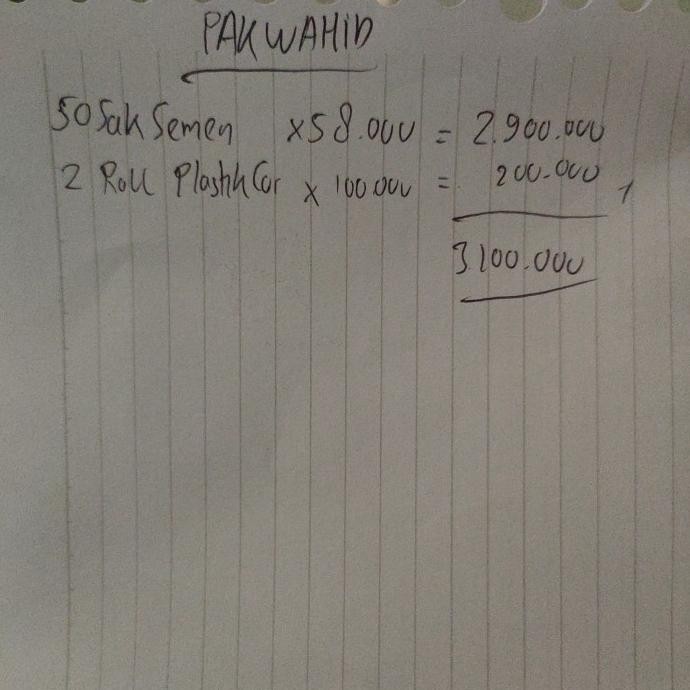 PAK WAHID
50 Sak Semen x 58.000 = 2.900.000
2 Roll Plastik Cor x 100.000 = 200.000
3.100.000